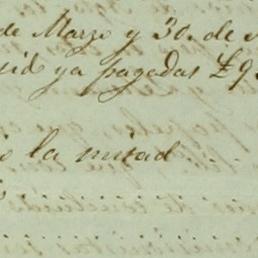 de Marzo y 30. de
sid ya pagadas £9
la mitad